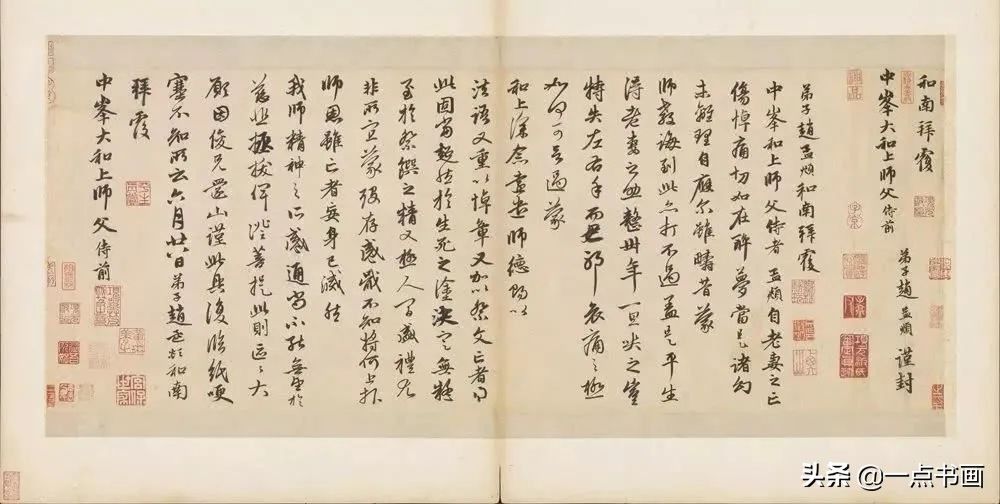 和南拜覆
中峯大和上師父侍前 弟子趙孟頫謹封
弟子趙孟頫和南拜覆
中峯和上師父侍者孟頫自老妻之亡
傷悼痛切如在醉夢當是諸幻
未離理自應爾雖疇昔蒙
師教誨到此亦打不過蓋是平生
得老妻之助整卅年一旦喪之豈
特失左右手而已耶哀痛之極
如何可言過蒙
和上深念遠遣師德賜以
法語又重以悼章又加以祭文亡者得
此固當超然於生死之塗決定無疑
至於祭饌之精又極人間盛禮尤
非所宜蒙殁存感戴不知將何上報
師恩雖亡者妄身已滅然
我師精神之所感通尚不能無望於
慈悲拯拔俾證菩提此則區區大
願因俊兄還山謹此具復臨紙哽
塞不知所云六月廿八日弟子趙孟頫和南
拜覆
中峯大和上師父侍前
头条 @一点书画